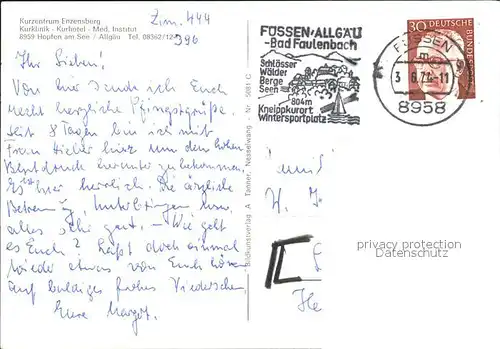 Kurzentrum Enzensburg
Kurklinik - Kurhotel - Med. Institut
8959 Hopfen am See / Allgäu Tel. 08362/12
Zim. 444
396
Ihr Lieben!
Von hier send ich Euch
recht herzliche Pfingstgrüße.
Seit 8 Tagen bin ich mit
Frau hier um den hohen
Blutdruck herunter zu bekommen.
Es ist hier herrlich. Die ärztliche
Betreuung, Unterbringen usw.
alles sehr gut. – Wie geht
es Euch? Laßt doch einmal
wieder etwas von Euch hören
Auf baldiges frohes Wiedersehen
Eure Margot.
Bildkunstverlag A. Tanner, Nesselwang - Nr. 5981 C
FÜSSEN/ALLGÄU
-Bad Faulenbach
Schlösser
Wälder
Berge
Seen
804m
Kneippkurort
Wintersportplatz
FÜSSEN
-11
8958
30
DEUTSCHE BUNDESPOST
Familie
H.
He
privacy protection
Datenschutz